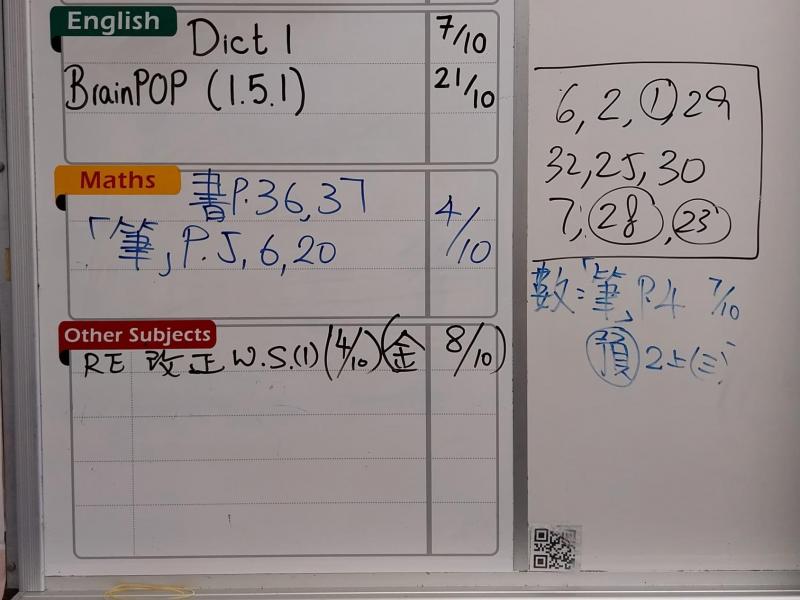 English
Dict 1 7/10
BrainPOP (1.5.1) 21/10
Maths
書P.36,37
「筆」P.5,6,20 4/10
Other Subjects
RE 改正 W.S.(1) (4/10) (金 8/10)
6, 2, 1, 29
32, 25, 30
7, 28, 23
數:「筆」P.4 7/10
預 2上(三)